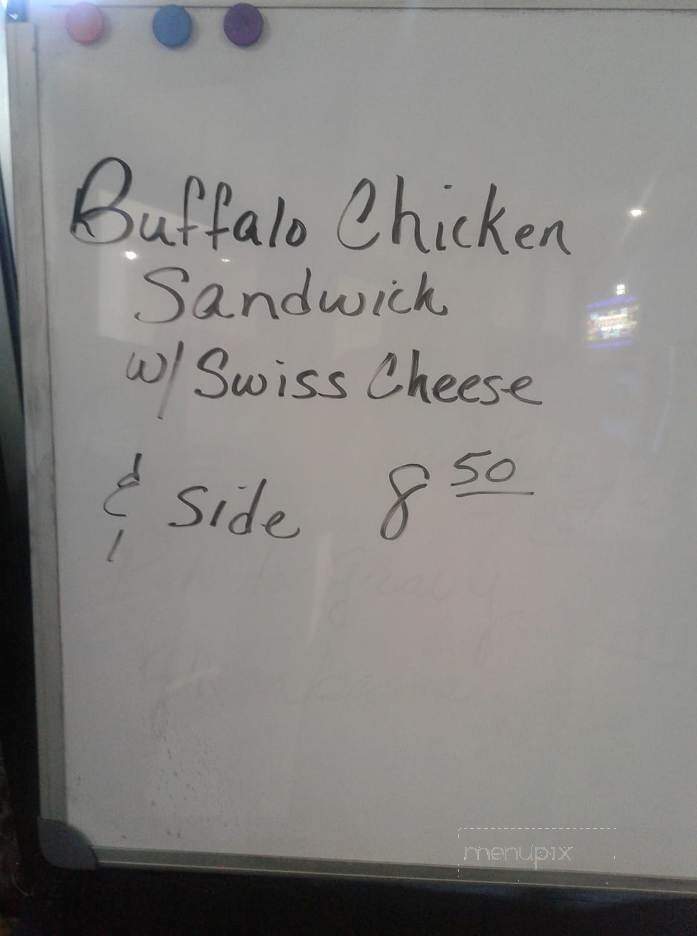 Buffalo Chicken
Sandwich
w/ Swiss Cheese
& Side 8 50
menupix